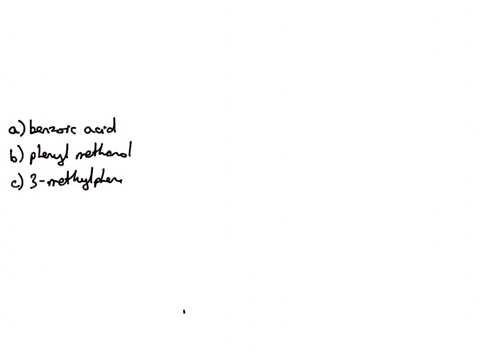 a) benzoic acid
b) phenyl methanol
c) 3-methylphen